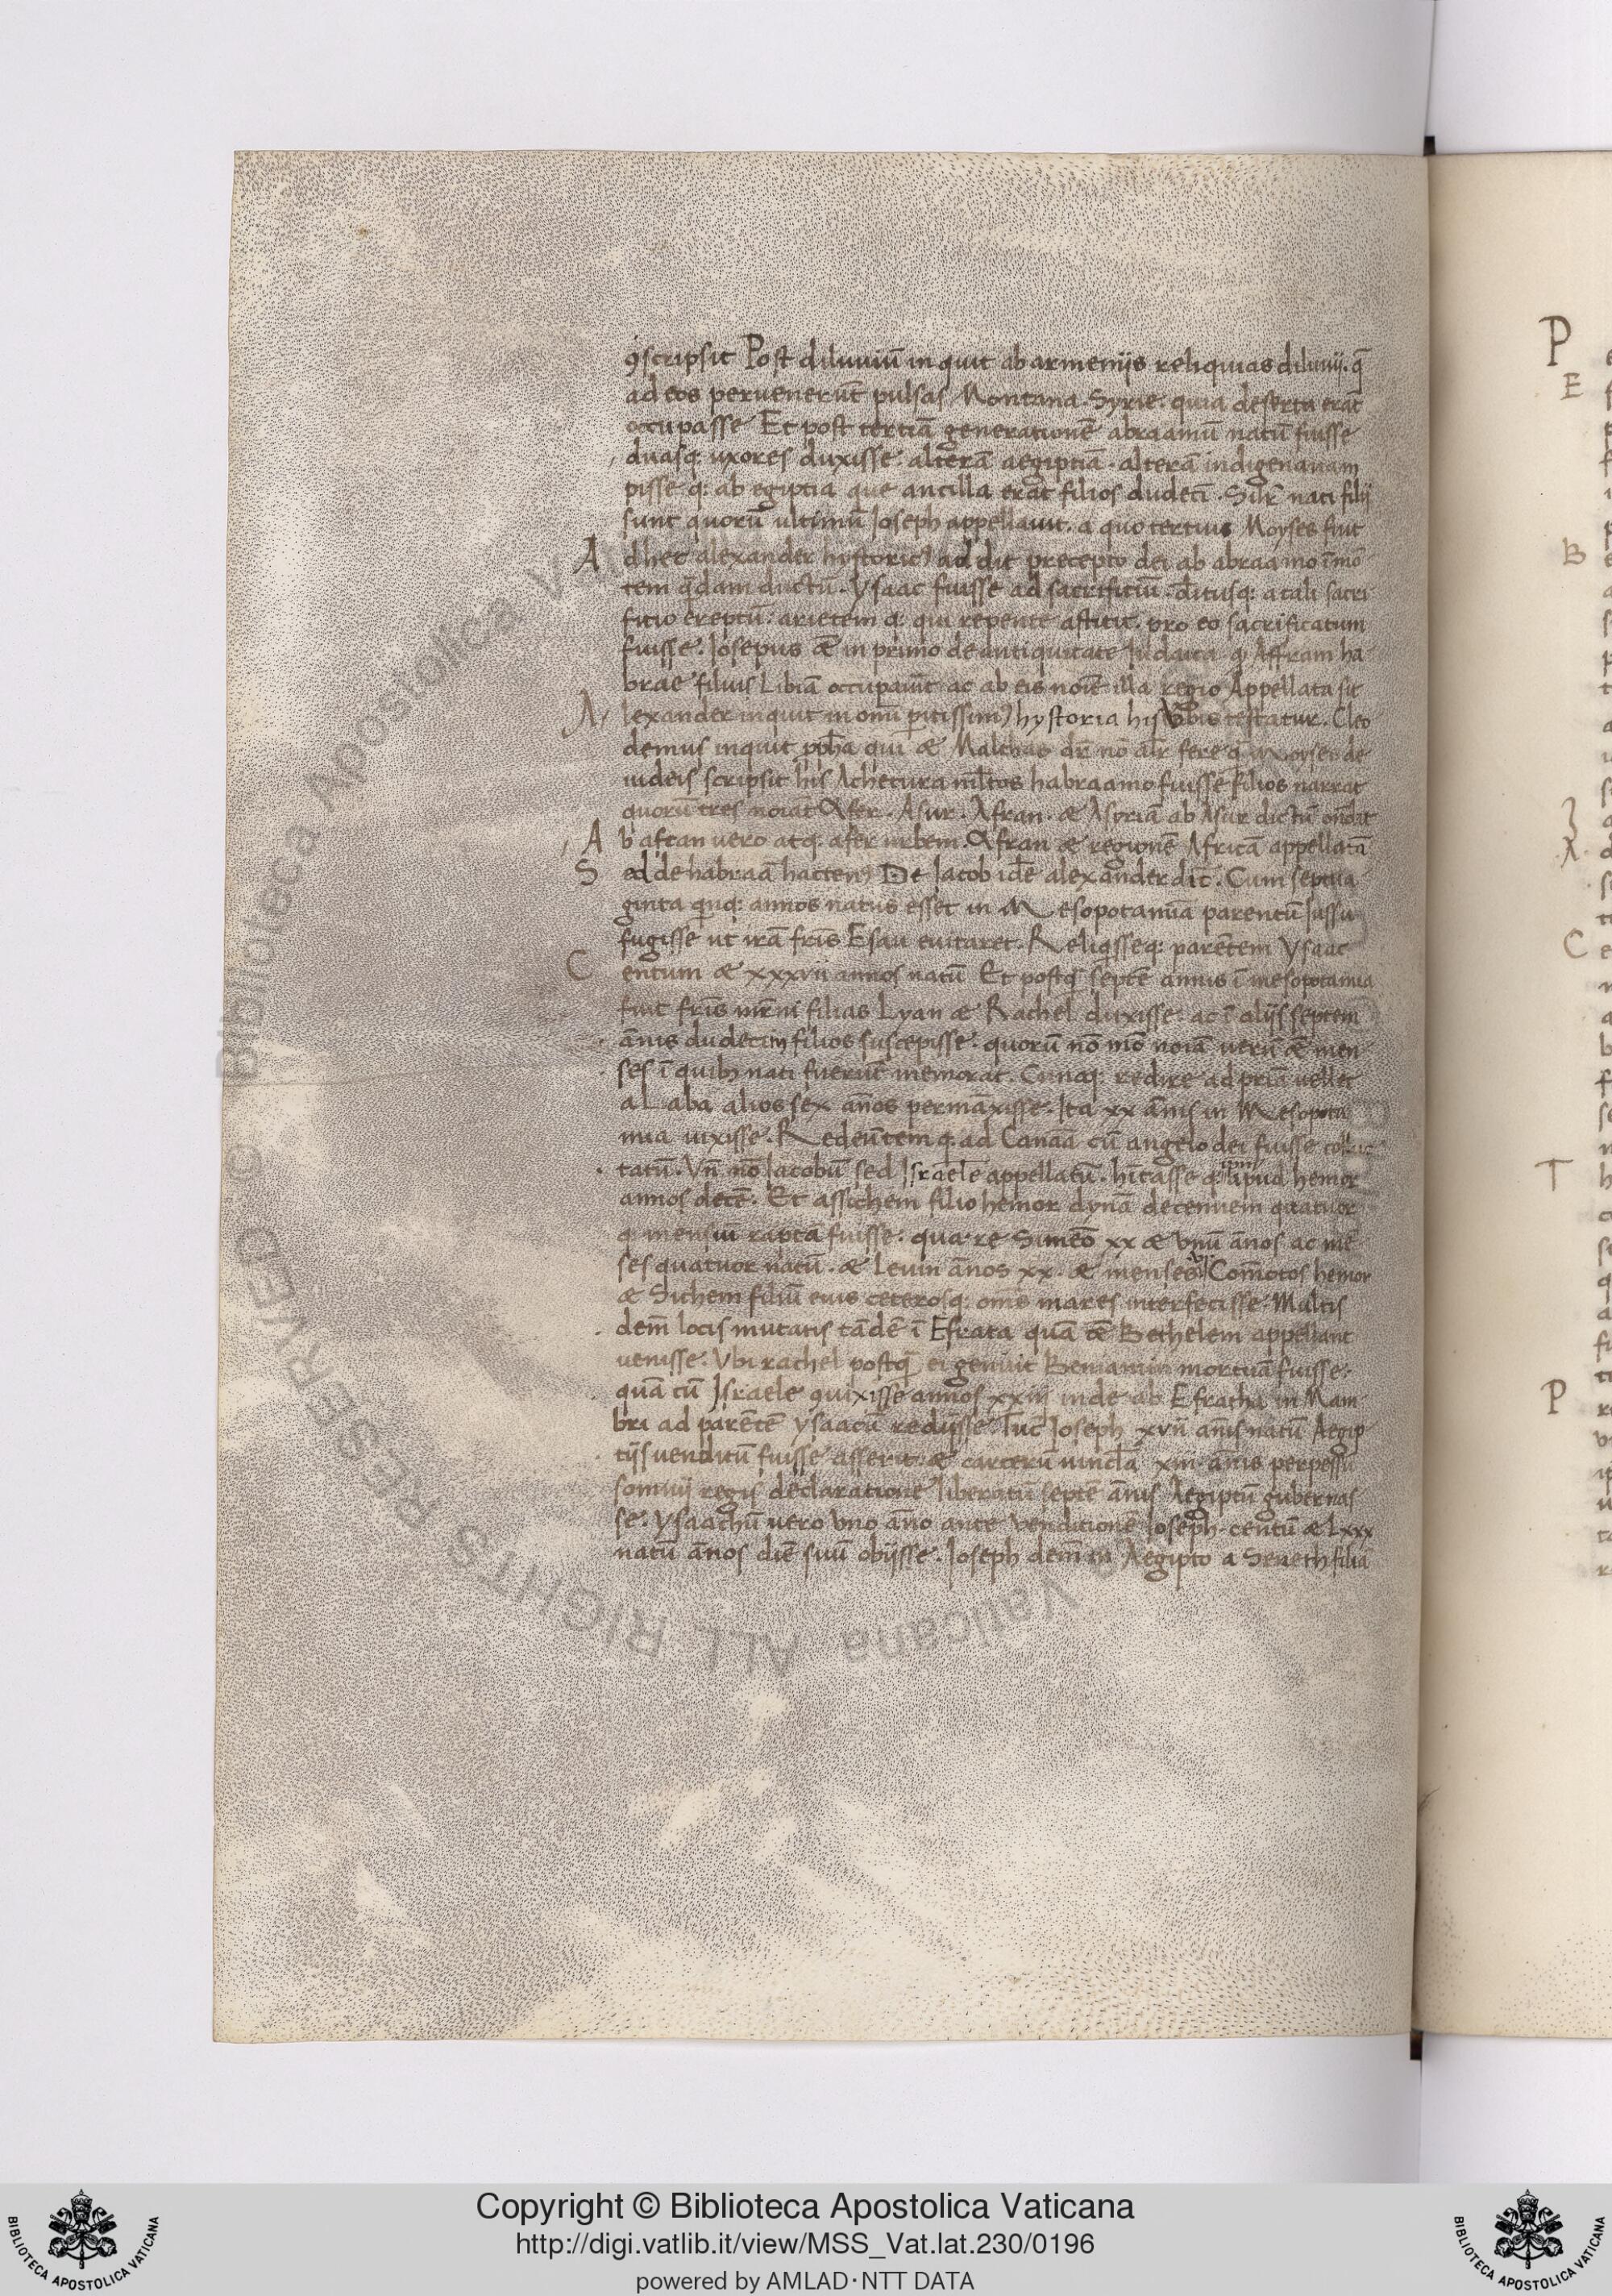 ꝯscripsit Post diluuiū inquit ab armenijs reliquias diluuij. q̄
ad eos peruenerūt pulsas Montana Syrie. quia deserta erāt
occupasse Et post tertiā generationē abraamū natū fuisse
duasq: uxores duxisse. alterā aegiptiā. alterā indigenam
pisse q: ab egiptia que ancilla erat filios dudeci. Silr̄ nati filij
sunt quorū ultimū Joseph appellauit. a quo tertius Moyses fuit
Ad hec alexander hystoricꝰ addit precepto dei ab abraamo ī mō
tem q̄dam ductū. ysaac fuisse ad sacrificiū. diītusq: a tali sacri
ficio ereptū. arietem q: qui repente astitit. pro eo sacrificatum
fuisse. Josepus æ in primo de antiquitate Judaica q Affram ha
brae filius Libiā occupauit ac ab eis noīe illa regio Appellata sit
Alexander inquit in om̄ peritissimꝰ hystoria his ūbis testatur. Cleo
demus inquit ppha qui æ Malchas dr̄ nō alr̄ fere q̄ Moyses de
iudeis scripsit his A chetura mltos habraamo fuisse filios narrat
quorū tres noīat Afer. Asur. Afran. æ Asyriā ab Asur dictū ondit
Ab afran uero atq. afer urbem. Afran æ regionē Africā appellatā
Sed de habraā hactenꝰ De Jacob idē alexander dic̄. Cum septua
ginta quinq: annos natus esset in Mesopotamiā parentū Jussu
fugisse ut irā fris̄ Esau euitaret. Reliqisseq: parētem ysaac
Centum æ xxxvii annos natū Et postq septē annis ī mesopotamia
fuit fris̄ mr̄ni filias Lyan æ Rachel duxisse. ac ī alijs septem
ānis dudecim filios suscepisse. quorū nō mō noīa uerū æ men
ses ī quibꝫ nati fuerūt memorat. Cumq: redire ad priā uellet
a Laba alios sex ānos permāxisse. Ita xx ānis in Mesopota
mia uixisse. Redeūtem q: ad Canaā cū angelo dei fuisse colluc
tatū. Vn̄ nō Jacobū sed Israele appellatū. hitasse q: apud hemor
annos decē. Et assichem filio hemor dynā decennem quatuor
q: mensiū raptā fuisse. qua re Simeō xx æ vnū ānos ac mē
ses quatuor natū. æ Leuin ānos xx. æ menses vi Com̄otos hemor
æ Sichem filiū eius ceterosq: om̄s mares interfecisse. Multis
dem̄ locis mutatis tādē ī Efrata quā æ Bethelem appellant
uenisse. Vbi rachel postq̄ ei genuit Beniamin mortuā fuisse.
quā cū Israele ꝯuixisse annos xxiij inde ab Efratha in Mam
bri ad parētē ysaacū redijsse. Tuc̄ Joseph xvii ānis natū Aegip
tijs uenditū fuisse asserit. æ carcerū uincla xiii. ānis perpessū
somnij regis declaratione liberatū septē ānis Aegiptū gubernas
se. ysaachū uero vno āno ante venditionē Joseph. centū æ Lxxx
natū ānos diē suū obijsse. Joseph dem̄ in Aegipto a Seneth filia
P
E
B
A
C
T
P
Copyright © Biblioteca Apostolica Vaticana
http://digi.vatlib.it/view/MSS_Vat.lat.230/0196
powered by AMLAD・NTT DATA
BIBLIOTECA APOSTOLICA VATICANA
BIBLIOTECA APOSTOLICA VATICANA